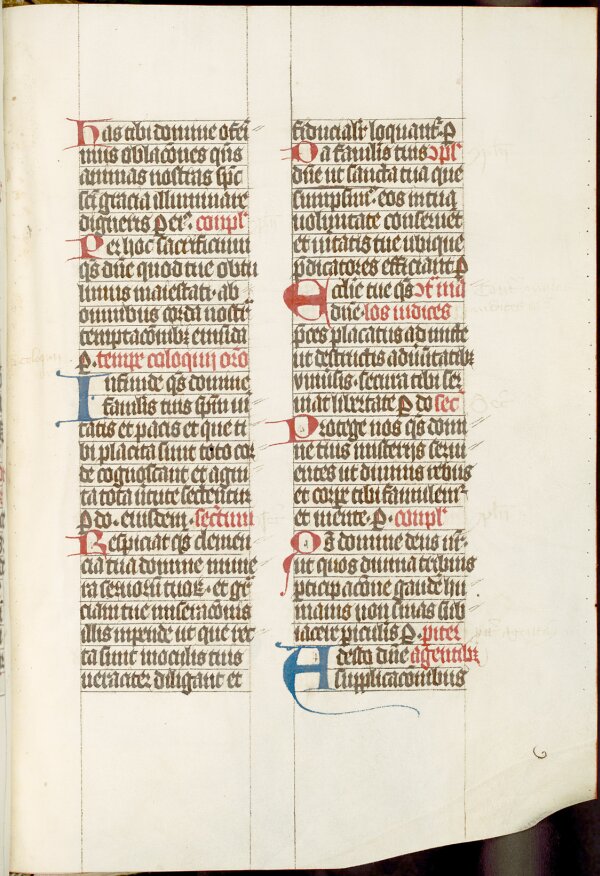 Has tibi domine offeri
mus oblacões q̄ns
animas nostras spc̄
sc̄i gracia illuminare
digneris P eiꝰ. compl'
Per hoc sacrificium
q̄s dn̄e quod tue obtu
limus maiestati · ab
omnibus corda nostr̄
temptacōnibꝫ emūda
P. tempe colloquij oro
Infunde q̄s domine
familis tuis spm̄ ūi
tatis et pacis et que ti
bi placita sunt toto cor
de cognoscant et agn̄i
ta tota v̄tute sectentur
P do · eiusdem · secretum
Respiciat q̄s clemen
cia tua domine mune
ra seruoꝝ tuoꝝ · et grā
ciam tue miseracōnis
illis inpende ut que rec
ta sunt in oculis tuis
ueraciter diligant et
fiducialr̄ loquant̄ᵣ P
Da familis tuis ꝯpl'
dn̄e ut sancta tua que
sumpsim̄ꝰ · eos in tua
uoluntate conseruēt
et uitatis tue ubique
p̄dicatores efficiant P
Ecclie tue q̄s ꝯt̄ ma
dn̄e · los iudices
p̄ces placatus admitte
ut destructis aduꝰitatibꝫ
vniuꝰsis · secura tibi ser
uiat libertate P do sec̄
Protege nos q̄s domi
ne tuis misterijs serui
entes ut diuinis rebus
et corpe tibi famulemꝰ
et mente · P · compl'
Qs domine deus nr̄ ·
ut quos diuina tribuis
pticipacōne gaude hu
manis non sinas sub
iacere piculis P · p iter
Adesto dn̄e agentibꝫ
supplicacōnibus